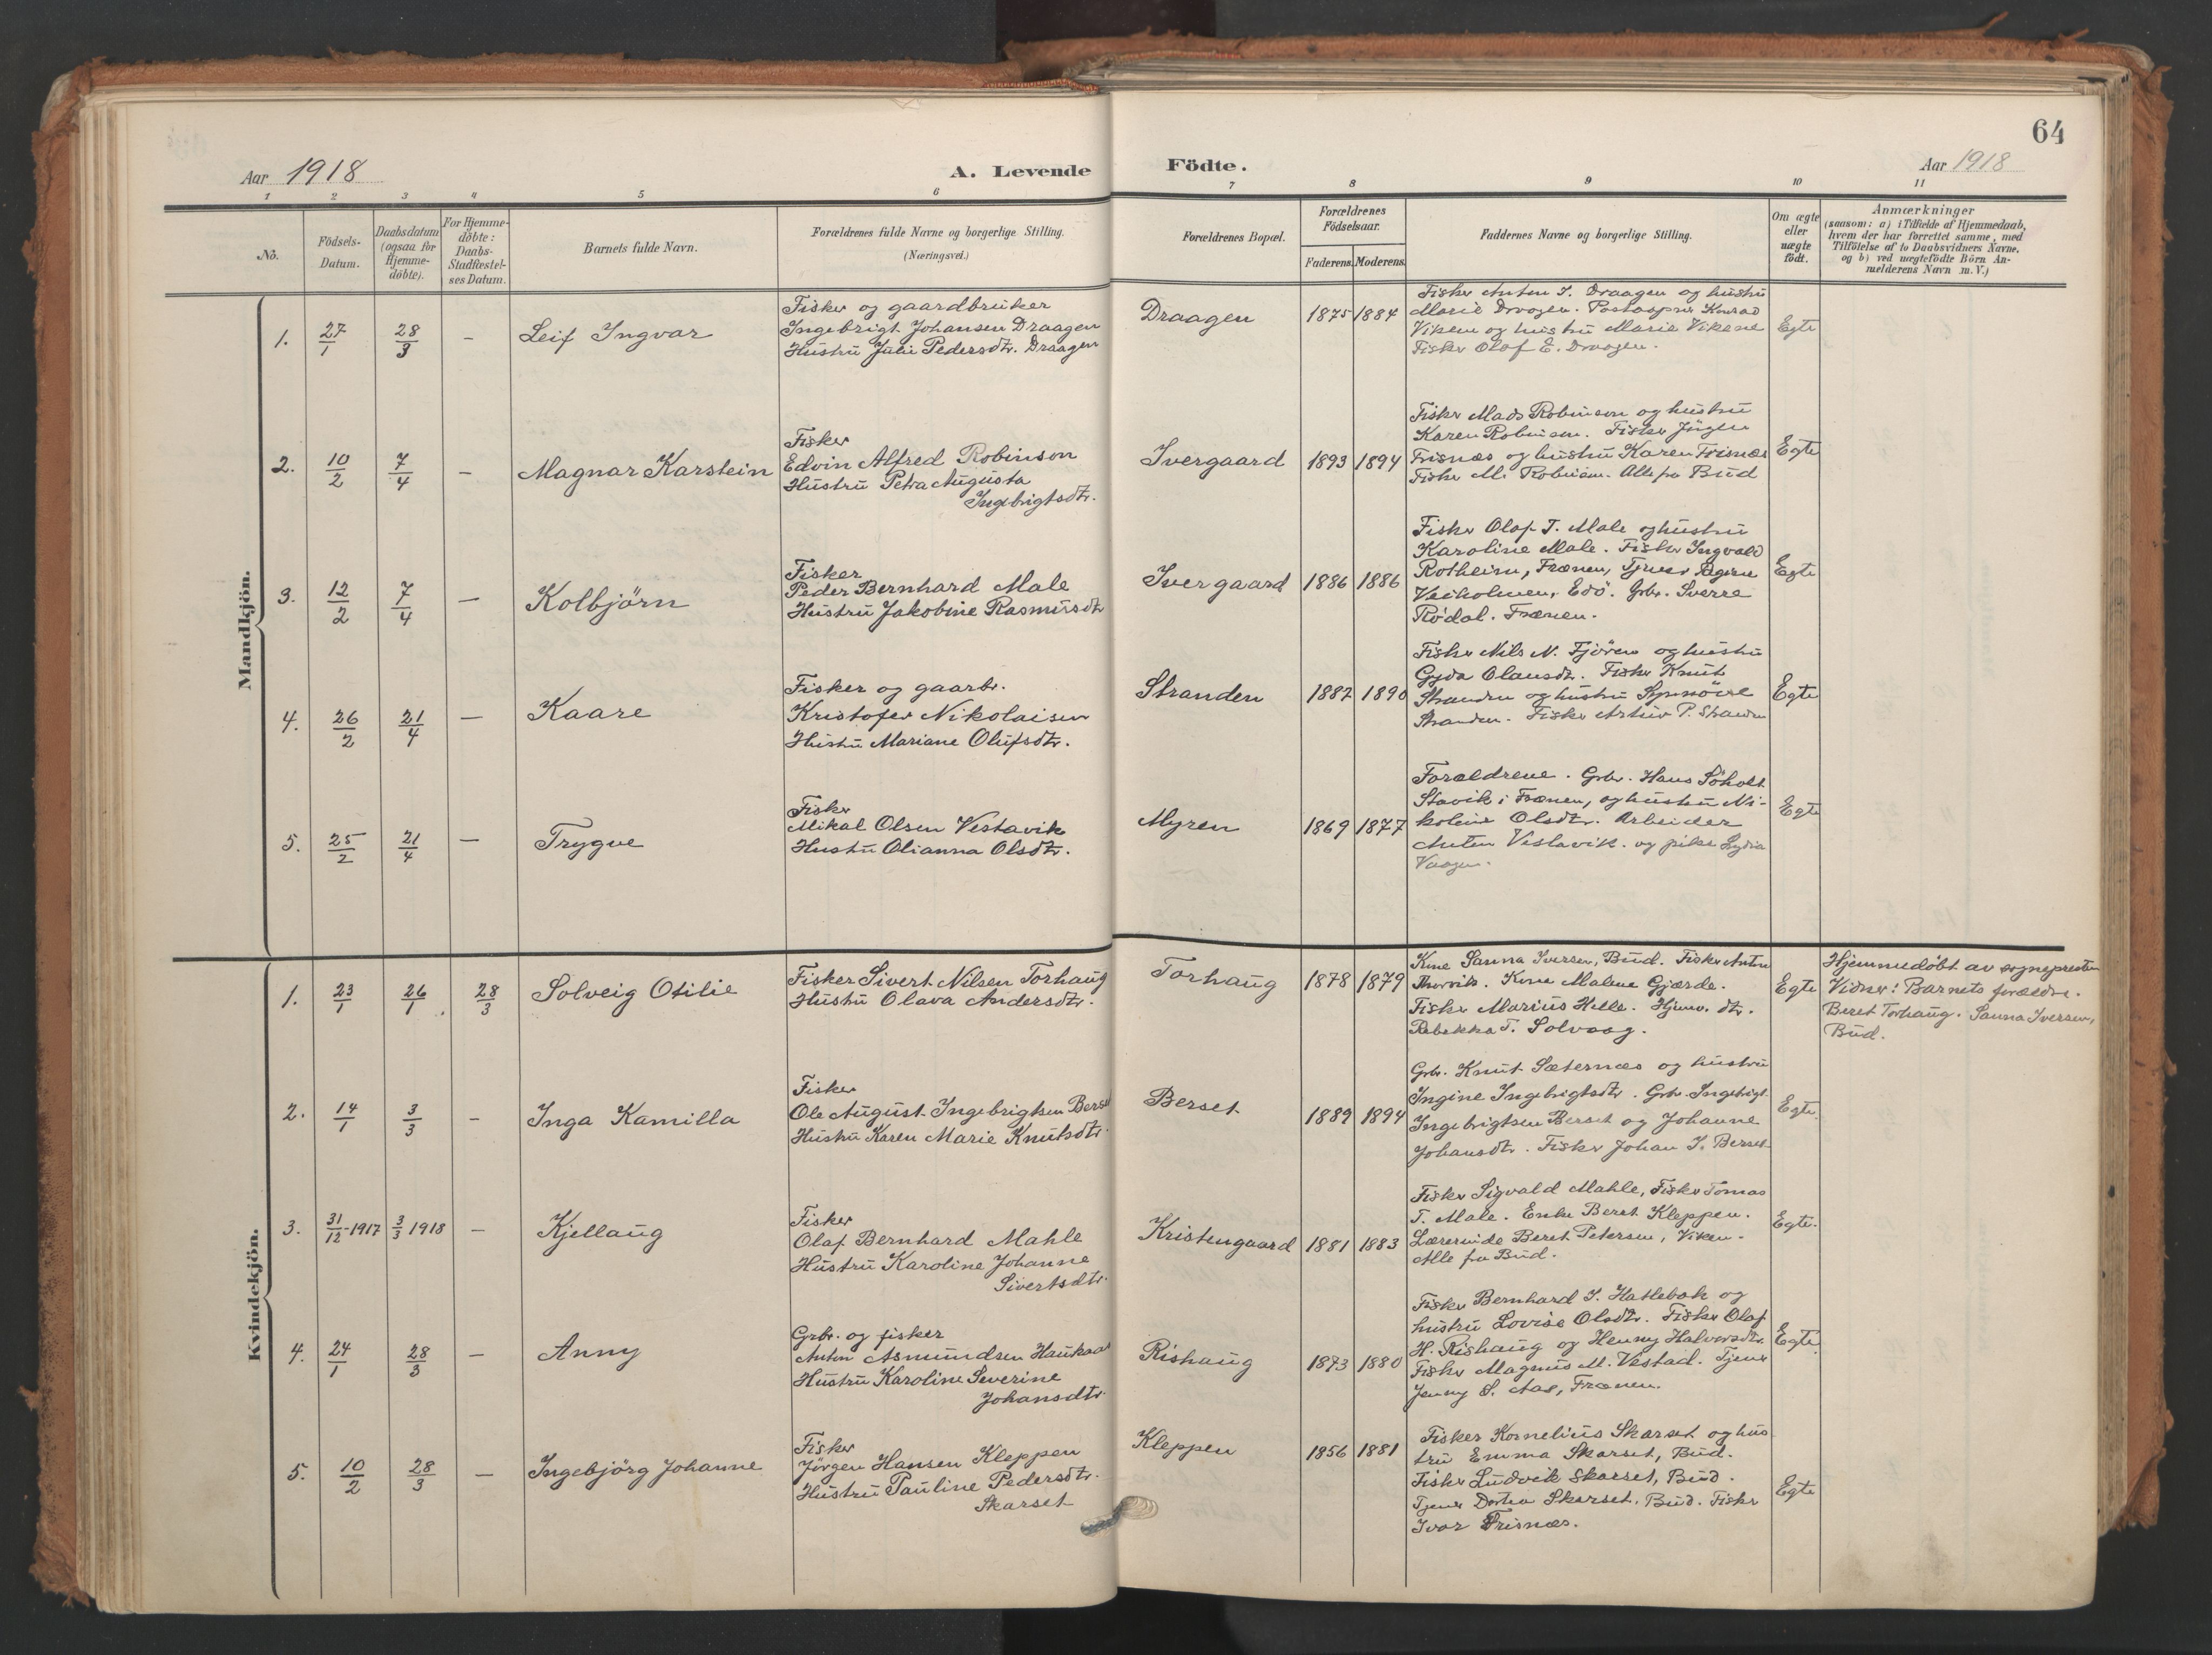 64
Aar 1918
A. Levende
Födte.
Aar 1918
1 2 3 4 5 6 7 8 9 10 11
No.
Födsels-
Datum.
Daabsdatum
(ogsaa for
Hjemme-
döbte).
For Hjemme-
döbte:
Daabs-
Stadfæstel-
ses Datum.
Barnets fulde Navn.
Forældrenes fulde Navne og borgerlige Stilling.
(Næringsvei.)
Forældrenes Bopæl.
Forældrenes
Födselsaar.
Faderens. Moderens.
Faddernes Navne og borgerlige Stilling.
Om ægte
eller
uægte
födt.
Anmærkninger
(saasom: a) i Tilfælde af Hjemmedaab,
hvem der har forrettet samme, med
Tilföielse af to Daabsvidners Navne,
og b) ved uægtefödte Börn An-
melderens Navn m. V.)
Mandkjön.
1. 27/1 28/3 – Leif Ingvar
Fisker og gaardbruker
Ingebrigt Johansen Draagen
Hustru Julie Pedersdtr. Draagen
Draagen 1875 1884
Fisker Anton I. Draagen og hustru
Marie Draagen. Postaapner Konrad
Viken og hustru Marie Vikene
Fisker Olaf E. Draagen.
Egte
2. 10/2 7/4 – Magnar Karstein
Fisker
Edvin Alfred Robinson
Hustru Petra Augusta
Ingebrigtsdtr.
Ivergaard 1893 1894
Fisker Mads Robinson og hustru
Karen Robinson. Fisker Jörgen
Frisnæs og hustru Karen Frisnæs
Fisker M. Robinson. Alle fra Bud
Egte
3. 12/2 7/4 – Kolbjörn
Fisker
Peder Bernhard Male
Hustru Jakobine Rasmusdtr
Ivergaard 1886 1886
Fisker Olaf T. Male og hustru
Karoline Male. Fisker Ingvald
Rotheim, Frænen, Tjener
Veiholmen, Edö. Grbr. Sverre
Rödal. Frænen.
Egte
4. 26/2 21/4 – Kaare
Fisker og gaarbr.
Kristofer Nikolaisen
Hustru Mariane Olufsdtr.
Stranden 1887 1890
Fisker Nils N. Tjören og hustru
Gyda Olausdtr. Fisker Knut
Stranden og hustru Synnöve
Stranden. Fisker Artur P. Stranden
Egte
5. 25/2 21/4 – Trygve
Fisker
Mikal Olsen Vestavik
Hustru Olianna Olsdtr.
Myren 1869 1877
Forældrene. Grbr. Hans Söholt
Stavik i Frænen, og hustru Ni-
koline Olsdtr. Arbeider
Anton Vestavik. og pike Lydia
Vaagen.
Egte
Kvindekjön.
1. 23/1 26/1 28/3 Solveig Otilie
Fisker Sivert Nilsen Torhaug
Hustru Olava Andersdtr.
Torhaug 1878 1879
Kone Sanna Iversen, Bud. Fisker Anton
Thorvik. Kone Malene Gjærde.
Fisker Marius Helle. Hjemv. dtr.
Rebekka T. Solvaag.
Egte
Hjemmedöbt av sognepresten
Vidner: Barnets forældre.
Beret Torhaug. Sanna Iversen,
Bud.
2. 14/1 3/3 – Inga Kamilla
Fisker
Ole August Ingebrigtsen Berset
Hustru Karen Marie Knutsdtr.
Berset 1889 1894
Grbr. Knut Sæternæs og hustru
Ingine Ingebrigtsdtr. Grbr. Ingebrigt
Ingebrigtsen Berset og Johanne
Johansdtr. Fisker Johan I. Berset
Egte.
3. 31/12-1917 3/3 1918 – Kjellaug
Fisker
Olaf Bernhard Mahle
Hustru Karoline Johanne
Sivertsdtr.
Kristengaard 1881 1883
Fisker Sigvald Mahle, Fisker Tomas
T. Male. Enke Beret Kleppen.
Lærerinde Beret Petersen, Viken.
Alle fra Bud.
Egte.
4. 24/1 28/3 – Anny
Grbr. og fisker
Anton Asmundsen Haukaas
Hustru Karoline Severine
Johansdtr.
Rishaug 1873 1880
Fisker Bernhard I. Hatlebak og
hustru Lovise Olsdtr. Fisker Olaf
H. Rishaug og Henny Halvorsdtr.
Fisker Magnus M. Vestad. Tjener
Jenny S. Aas, Frænen.
Egte
5. 10/2 28/3 – Ingebjörg Johanne
Fisker
Jörgen Hansen Kleppen
Hustru Pauline Pedersdtr.
Skarset
Kleppen 1856 1881
Fisker Kornelius Skarset og hus
tru Emma Skarset, Bud.
Fisker Ludvik Skarset, Bud.
Tjener Dortea Skarset. Bud. Fisker
Ivar Frisnæs.
Egte